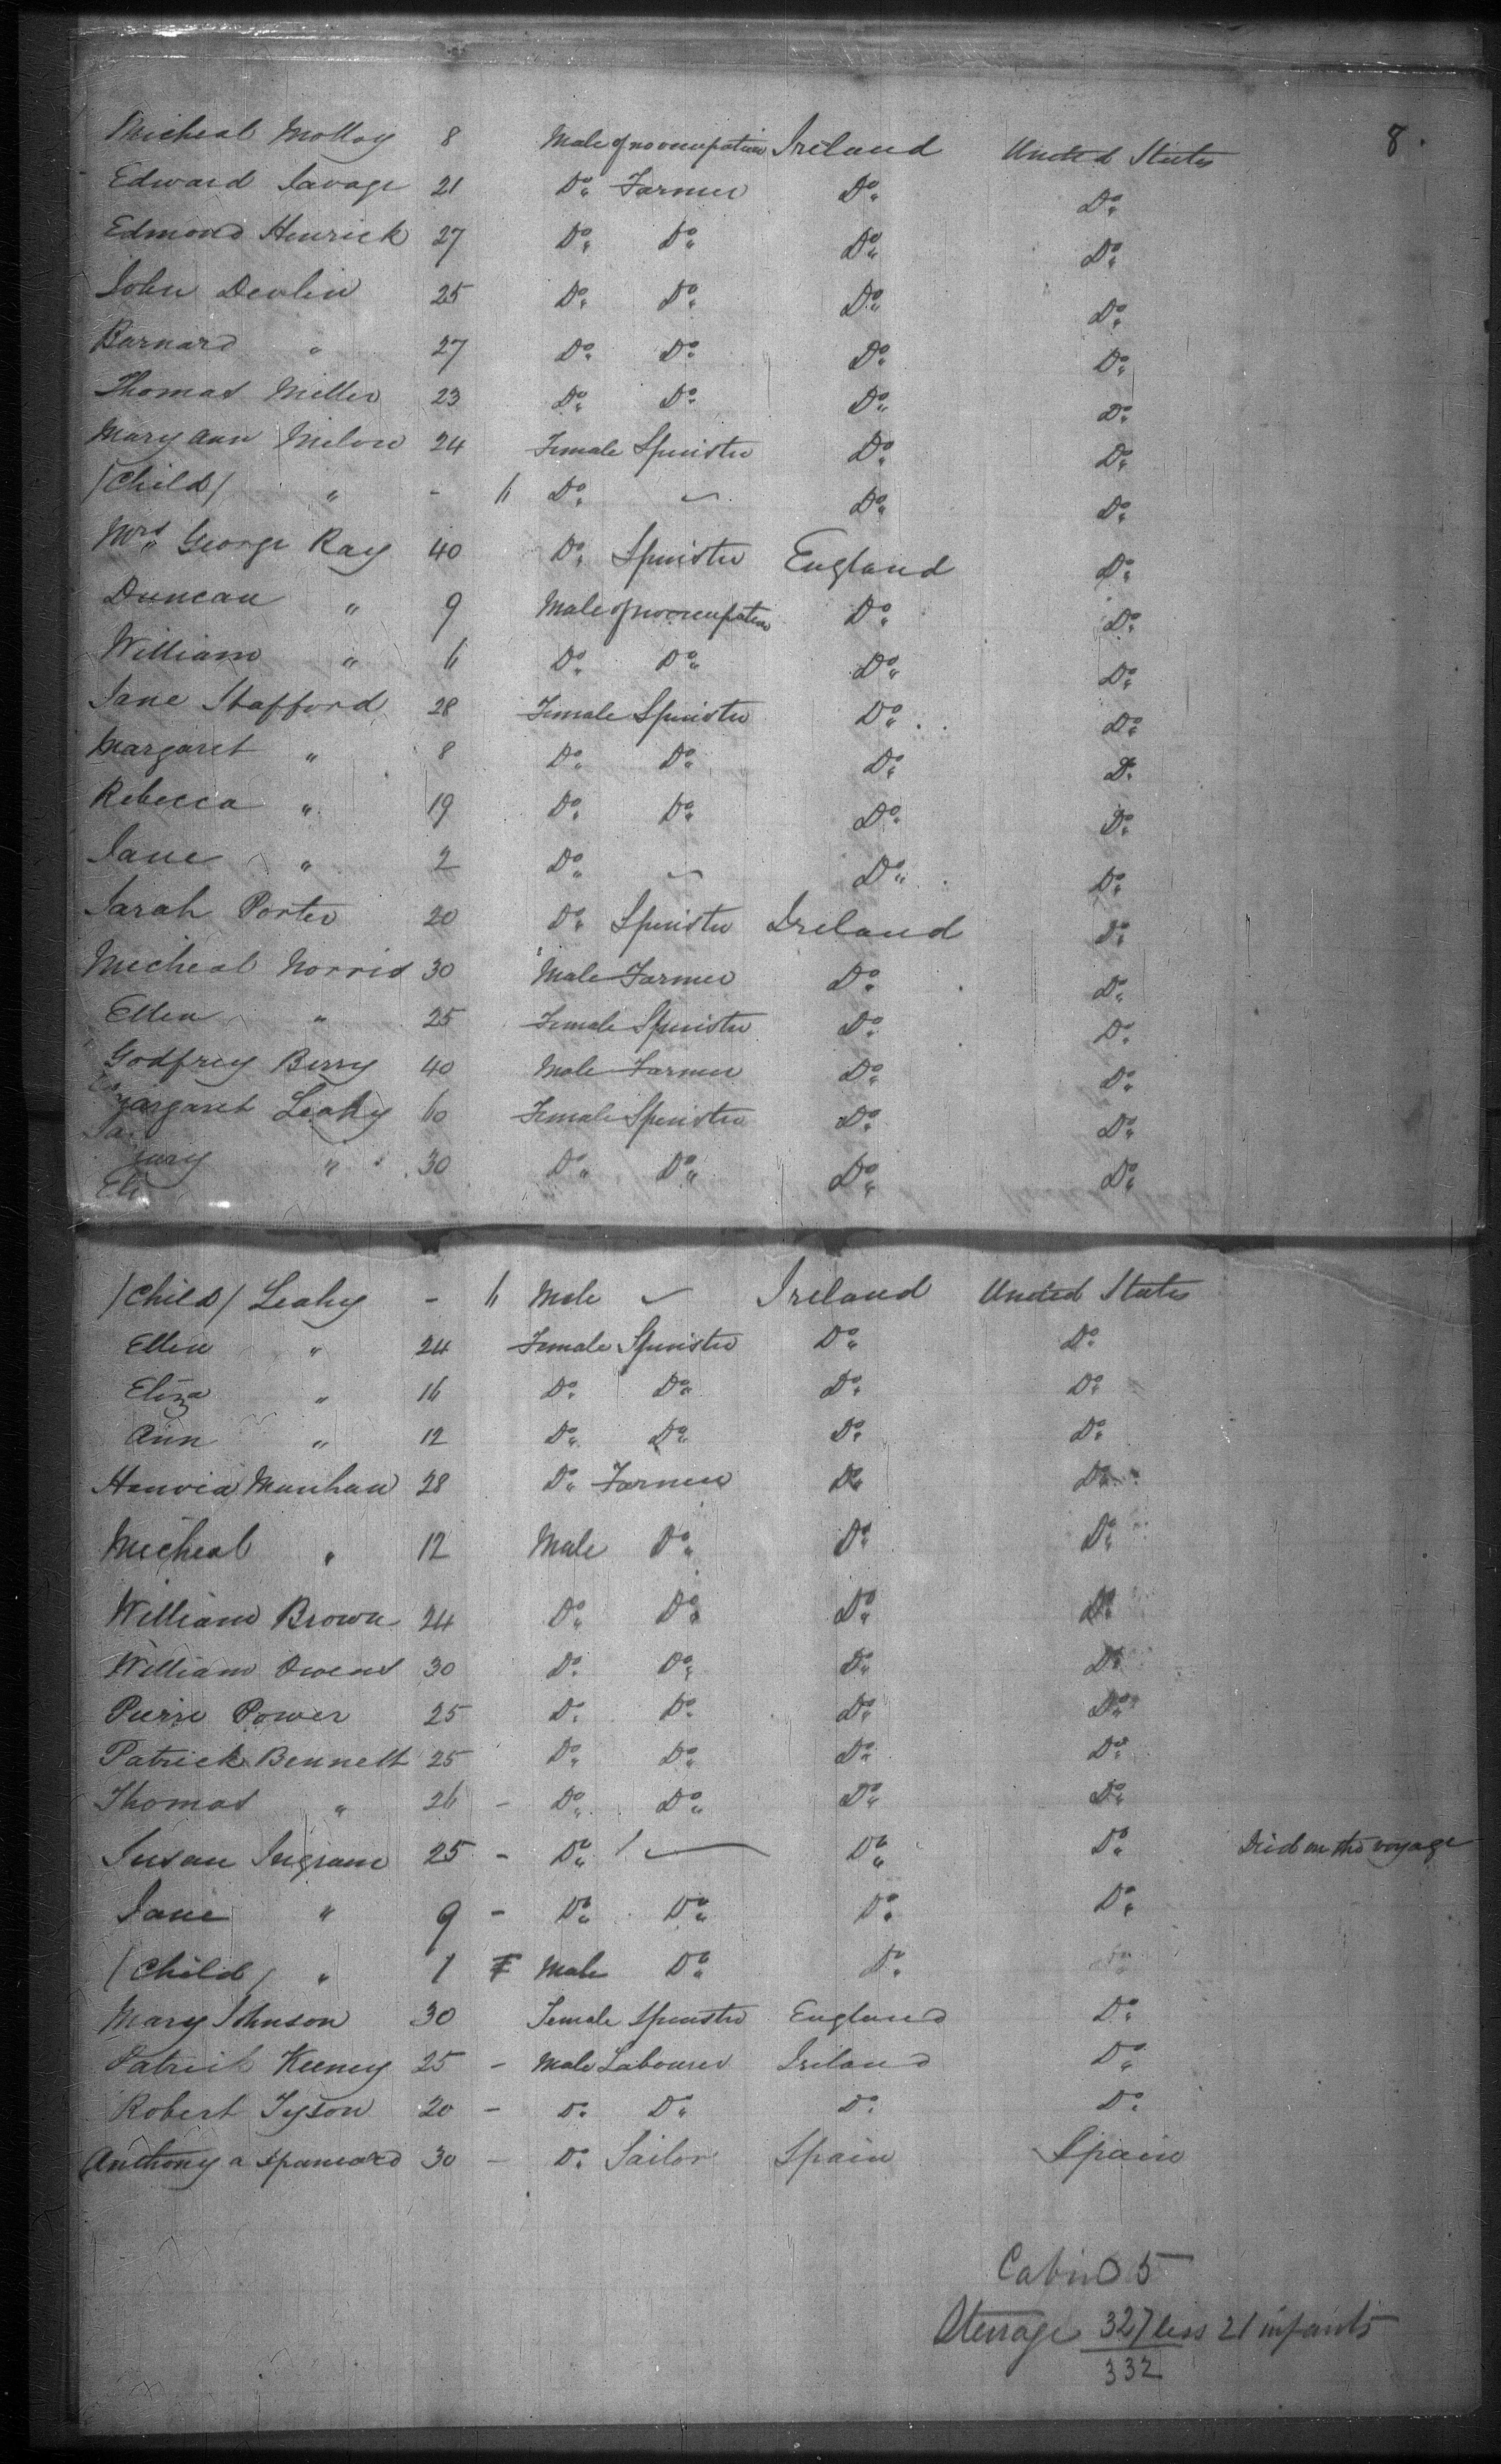 8.
Micheal Molloy 8 Male of no occupation Ireland United States
Edward Savage 21 Do Farmer Do Do
Edmond Henrick 27 Do Do Do Do
John Devlin 25 Do Do Do Do
Barnard " 27 Do Do Do Do
Thomas Miller 23 Do Do Do Do
Mary Ann 24 Female Spinster Do Do
(Child) " - 6 Do Do Do
Mrs George Ray 40 Do Spinster England Do
Duncan " 9 Male of no occupation Do Do
William " 6 Do Do Do Do
Jane Stafford 28 Female Spinster Do Do
Margaret " 8 Do Do Do Do
Rebecca " 19 Do Do Do Do
Jane " 2 Do Do Do
Sarah Porter 20 Do Spinster Ireland Do
Micheal Norris 30 Male Farmer Do Do
Ellen " 25 Female Spinster Do Do
Godfrey Berry 40 Male Farmer Do Do
Margaret Leahy 60 Female Spinster Do Do
" 30 Do Do Do Do
(Child) Leahy - 6 Male Ireland United States
Ellen " 24 Female Spinster Do Do
Eliza " 16 Do Do Do Do
Ann " 12 Do Do Do Do
28 Do Farmer Do Do
Micheal " 12 Male Do Do Do
William Brown 24 Do Do Do Do
William Owens 30 Do Do Do Do
Pierre Power 25 Do Do Do Do
Patrick Bennett 25 Do Do Do Do
Thomas " 26 - Do Do Do Do
Susan Ingram 25 - Do Do Do Died on the voyage
Jane " 9 - Do Do Do Do
(Child) " 1 F Male Do Do Do
Mary Johnson 30 Female Spinster England Do
Patrick Keeney 25 - Male Labourer Ireland Do
Robert Tyson 20 - Do Do Do Do
Anthony a Spaniard 30 - Do Sailor Spain Spain
Cabin 5
Sterrage 327 less 21 infants
332